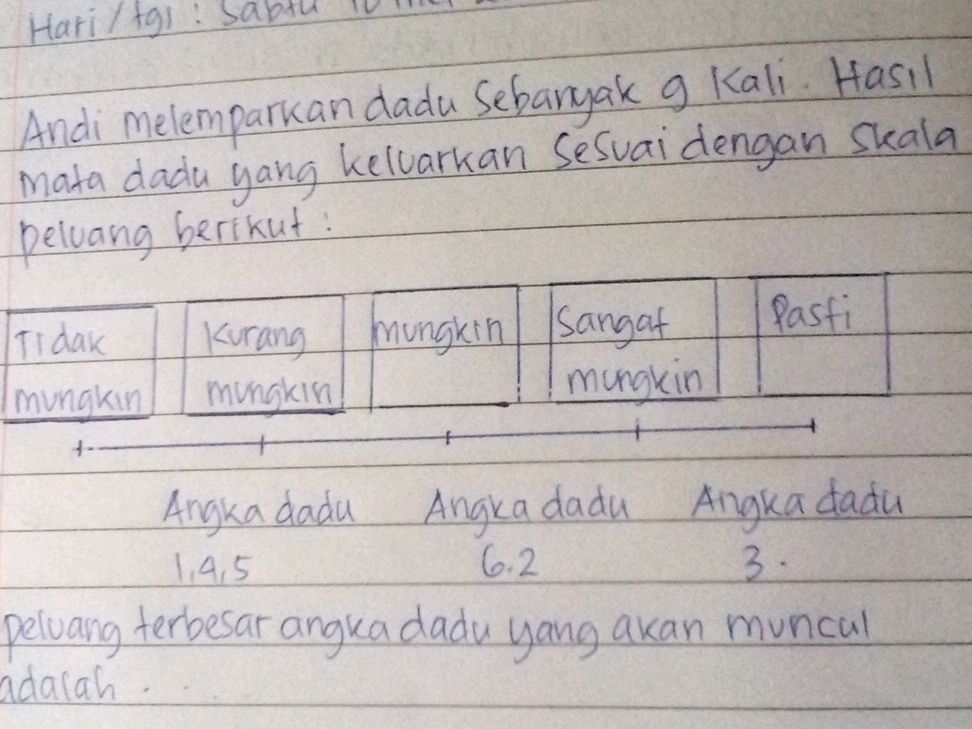 Hari / tgl : Sabtu 10 mei
Andi melemparkan dadu sebanyak 9 kali. Hasil
mata dadu yang keluarkan sesuai dengan skala
peluang berikut :
Tidak mungkin
Kurang mungkin
mungkin
Sangat mungkin
Pasti
Angka dadu 1,4,5
Angka dadu 6.2
Angka dadu 3.
peluang terbesar angka dadu yang akan muncul
adalah . . .